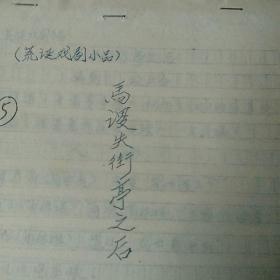 (荒诞戏剧小品)
⑤
馬谡失街亭之后